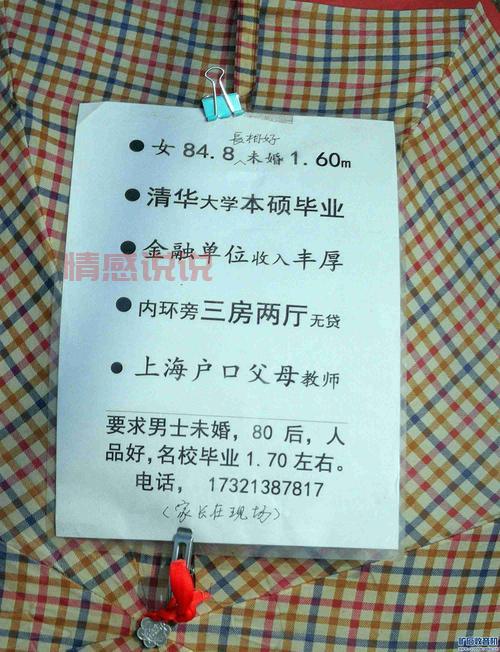 長相好
● 女 84.8 ^ 未婚 1.60m
● 清华大学本硕毕业
● 金融单位收入丰厚
情感说说
● 内环旁三房两厅无贷
● 上海户口父母教师
要求男士未婚，80 后，人
品好，名校毕业 1.70 左右。
电话， 17321387817
（家长在现场）